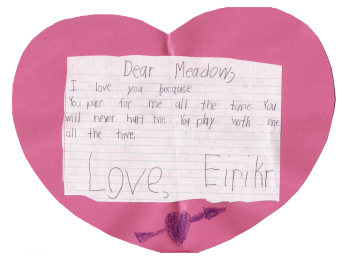 Dear Meadows
I love you because
You purr for me all the time. You
will never hurt me. You play with me
all the time.
Love, Eirikr